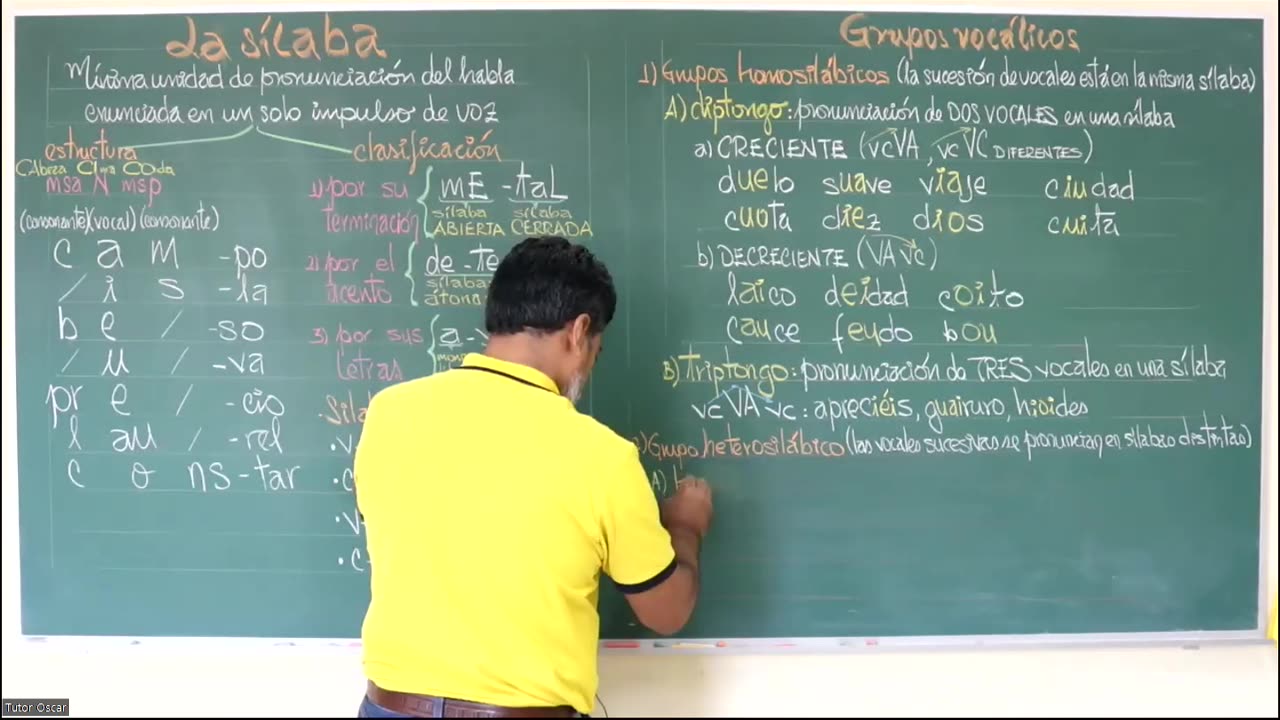 La sílaba
Mínima unidad de pronunciación del habla
enunciada en un solo impulso de voz
estructura
CAbeza CIma COda
msa N msp
(consonante)(vocal)(consonante)
c a m -po
/ i s -la
b e / -so
/ u / -va
pr e / -cio
l au / -rel
c o ns -tar
clasificación
1) por su terminación
mE - taL
sílaba sílaba
ABIERTA CERRADA
2) por el acento
de - te
sílaba
átona
3) por sus letras
a - 
Grupos vocálicos
1) Grupos homosilábicos (la sucesión de vocales está en la misma sílaba)
A) diptongo: pronunciación de DOS VOCALES en una sílaba
a) CRECIENTE (vcVA, vcVC DIFERENTES)
duelo suave viaje ciudad
cuota diez dios cuita
b) DECRECIENTE (VAvc)
laico deidad coito
cauce feudo bou
B) Triptongo: pronunciación de TRES vocales en una sílaba
vc VA vc: apreciéis, guairuro, hioides
2) Grupo heterosilábico (las vocales sucesivas se pronuncian en sílabas distintas)
A)
Tutor Oscar